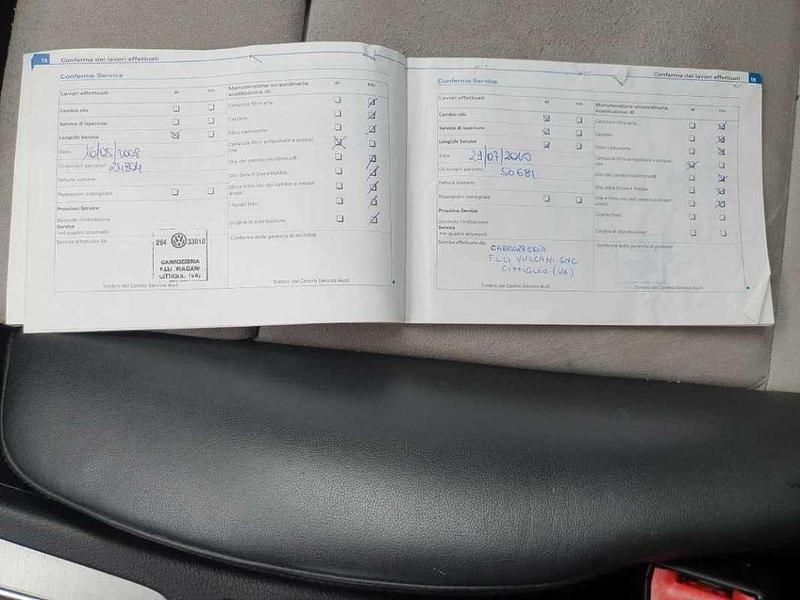 18 Conferma dei lavori effettuati
Conferma Service
Lavori effettuati si no
Cambio olio
Service di ispezione
LongLife Service
Data
16/05/2008
Chilometri percorsi
24804
Fattura numero
Riparazioni consigliate
Prossimo Service
Secondo l'indicazione
Service
nel quadro strumenti
Service effettuato da:
264 33010
CARROZZERIA
F.LLI VULCANI
CITTIGLIO (VA)
Timbro del Centro Service Audi
Manutenzione straordinaria, si no
sostituzione di:
Cartuccia filtro aria
Candele
Filtro carburante
Cartuccia filtro antipolvere e antipol-
line
Olio del cambio multitronic®
Olio della frizione Haldex
Olio e filtro olio del cambio a innesti
diretti
Liquido freni
Cinghia di distribuzione
Timbro del Centro Service Audi
Conferma dei lavori effettuati 19
Conferma Service
Lavori effettuati si no
Cambio olio
Service di ispezione
LongLife Service
Data
29/07/2010
Chilometri percorsi
50681
Fattura numero
Riparazioni consigliate
Prossimo Service
Secondo l'indicazione
Service
nel quadro strumenti
Service effettuato da:
CARROZZERIA
F.LLI VULCANI SNC
CITTIGLIO (VA)
Timbro del Centro Service Audi
Manutenzione straordinaria, si no
sostituzione di:
Cartuccia filtro aria
Candele
Filtro carburante
Cartuccia filtro antipolvere e antipol-
line
Olio del cambio multitronic®
Olio della frizione Haldex
Olio e filtro olio del cambio a innesti
diretti
Liquido freni
Cinghia di distribuzione
Timbro del Centro Service Audi